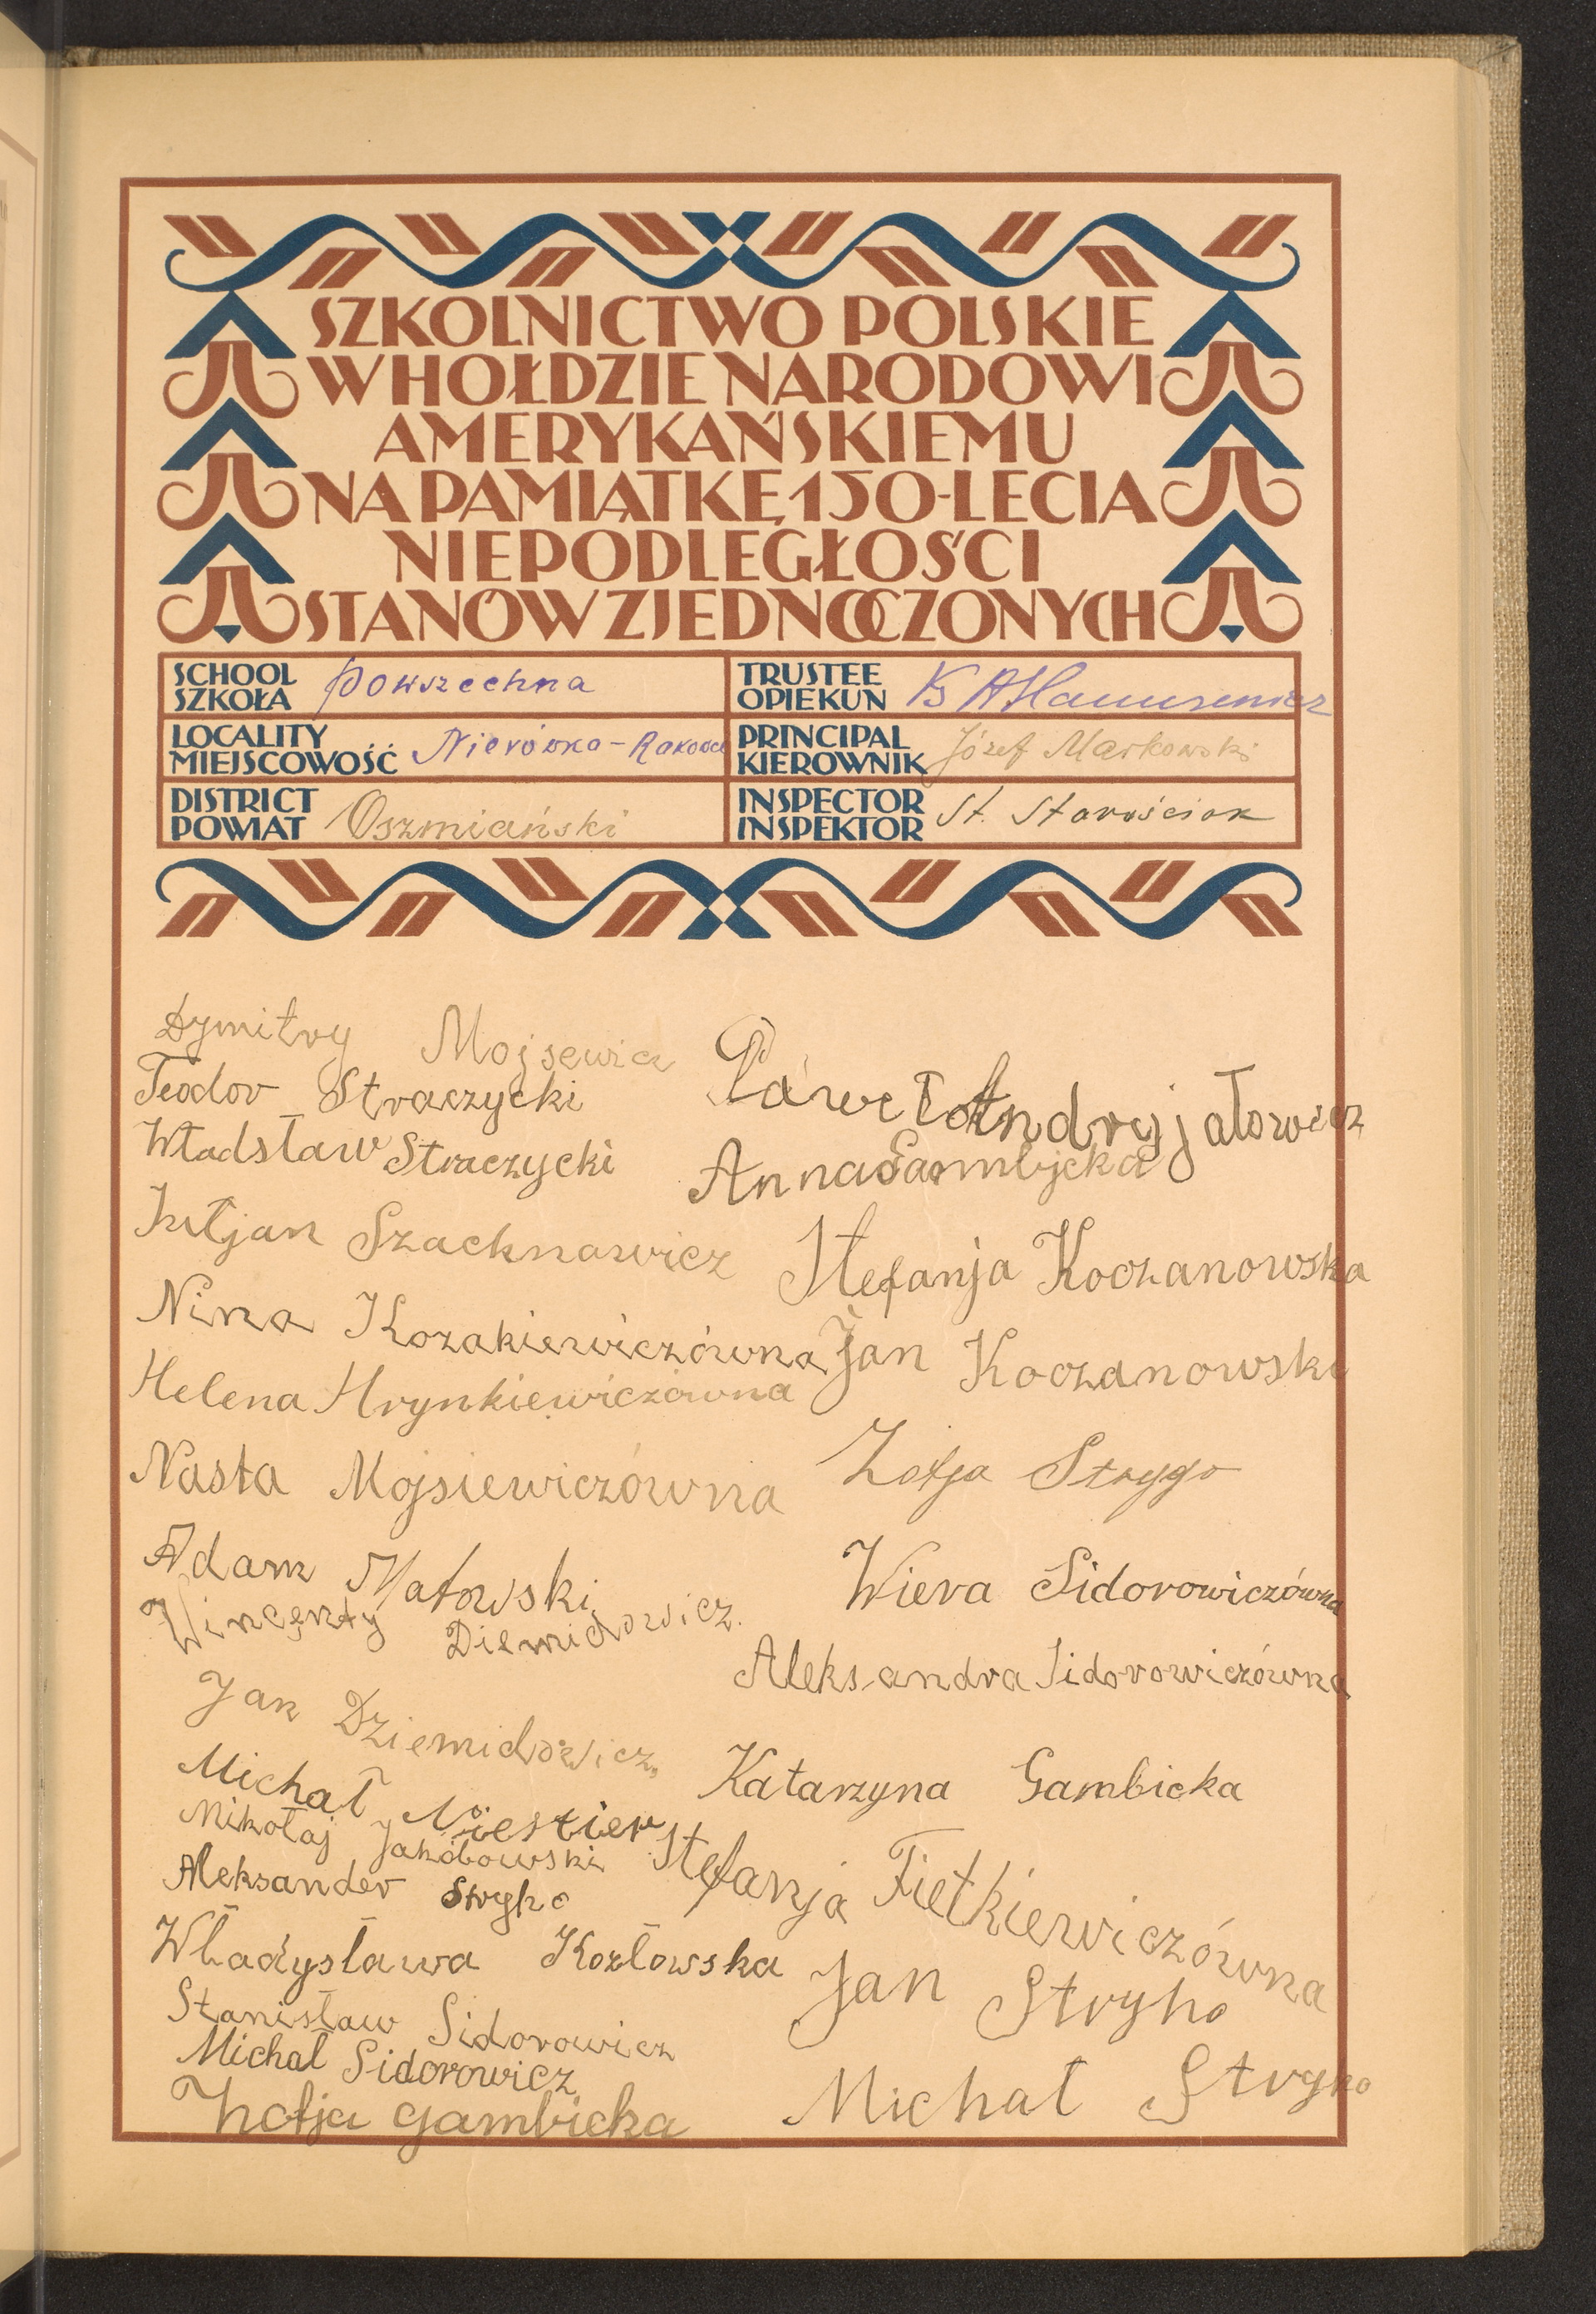 SZKOLNICTWO POLSKIE
W HOŁDZIE NARODOWI
AMERYKAŃSKIEMU
NA PAMIĄTKĘ 150-LECIA
NIEPODLEGŁOŚCI
STANÓW ZJEDNOCZONYCH
SCHOOL
SZKOŁA Powszechna
LOCALITY
MIEJSCOWOŚĆ Nierówka-
DISTRICT
POWIAT Oszmiański
TRUSTEE
OPIEKUN
PRINCIPAL
KIEROWNIK Józef Markowski
INSPECTOR
INSPEKTOR St. Starościak
Dymitry Mojsewicz
Teodor Straczycki
Władsław Straczycki
Juljan Szacknawicz
Nina Kozakiewiczówna
Helena Hrynkiewiczówna
Nasta Mojsiewiczówna
Adam Matowski
Wincenty Diemidowicz.
Jan Dziemidowicz,
Michał
Mikołaj Jakóbowski
Aleksander Stryho
Władysława Kozłowska
Stanisław Sidorowicz
Michał Sidorowicz
Zhofja Gambicka
Paweł Andryjałowicz
Anna
Stefanja Koczanowska
Jan Koczanowski
Zofja Strygo
Wiera Sidorowiczówna
Aleksandra Sidorowiczówna
Katarzyna Gambicka
Stefanja Fietkiewiczówna
Jan Stryho
Michał Stryho